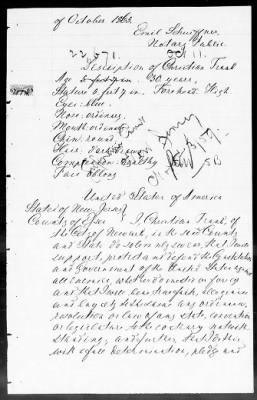 of October 1863.
Emil Schiffner,
Notary Public.
22,671. Oct. 11.
Description of Christian Trank
Age 30 years,
Stature 5 feet 7 in. Forehead: High
Eyes: blue.
Nose: ordinary,
Mouth: ordinary
Chin: round
Hair: dark brown
Complexion: healthy
Face: oblong
United States of America
State of New Jersey
County of Essex I, Christian Trank, of
the City of Newark, in the said County
and State do solemnly swear, that I will
support, protect and defend the Constitution
and Government of the United States against
all enemies, whether domestic or foreign
and that I will bear true faith, allegiance
and loyalty to the same any ordinance,
resolution or law of any state, convention
or legislature to the contrary notwith
standing; and further, that I do this
with a full determination, pledge and